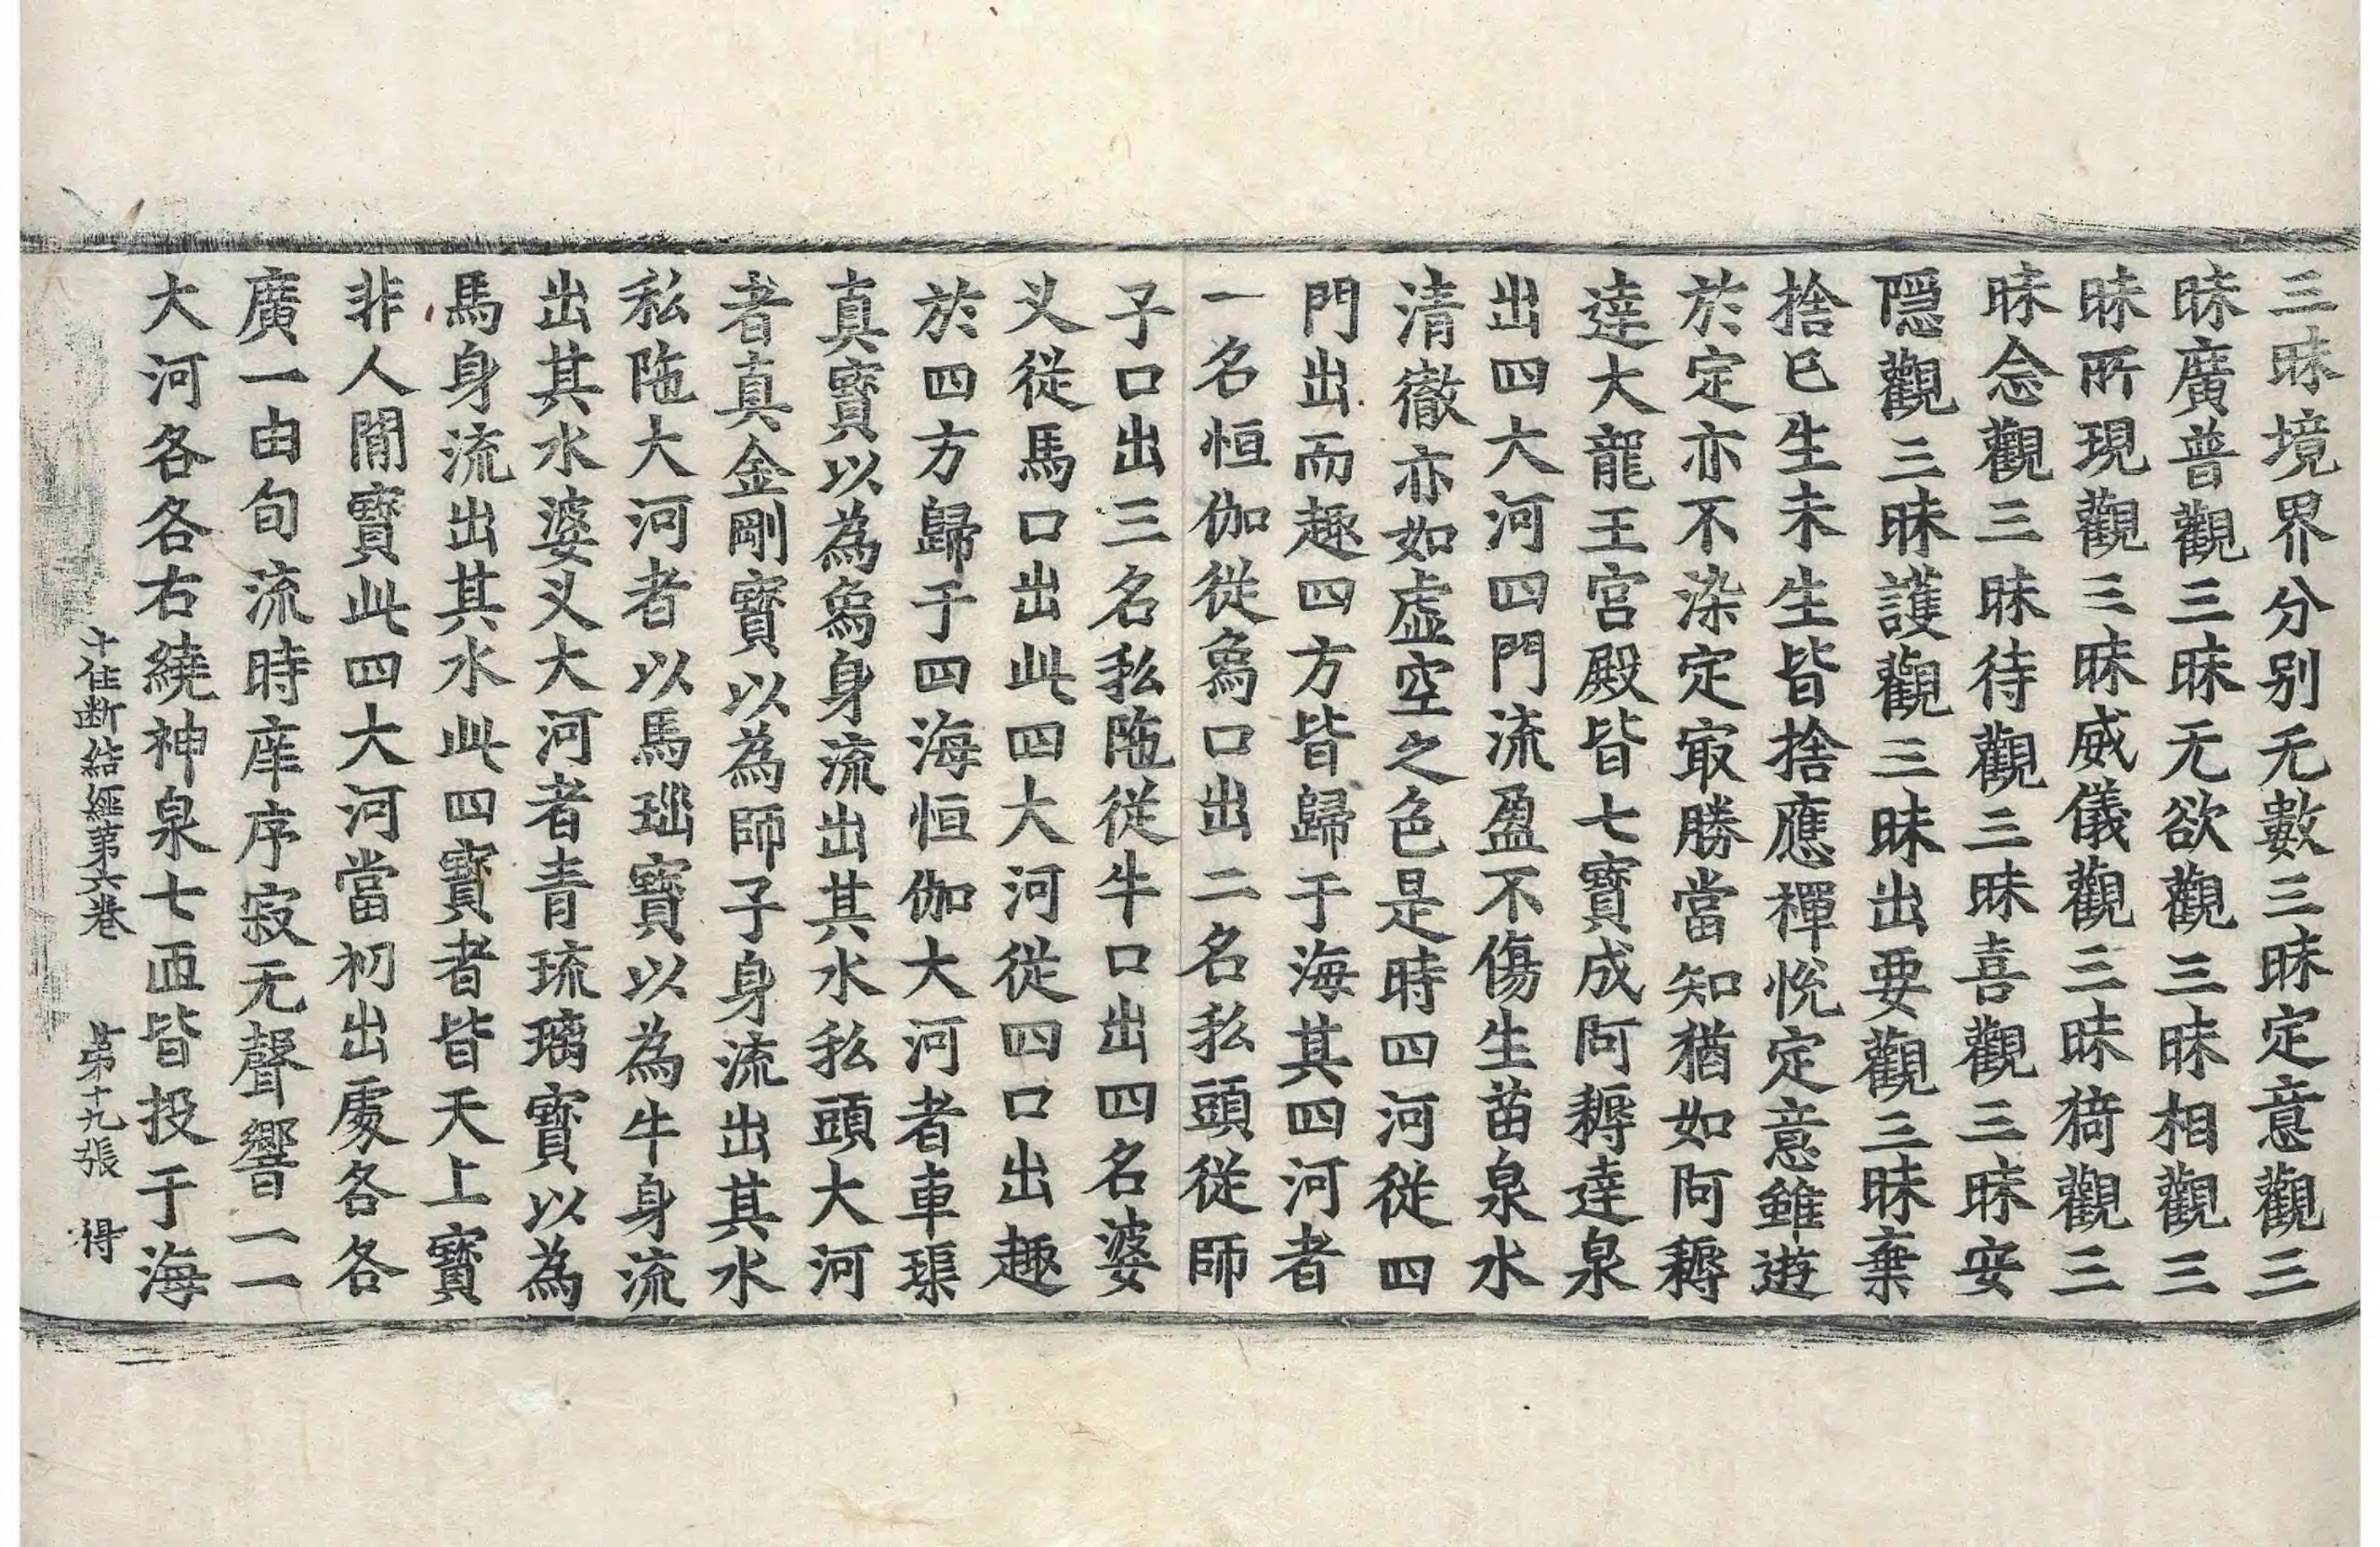 三昧境界分別无數三昧定意觀三
昧廣普觀三昧无欲觀三昧相觀三
昧所現觀三昧威儀觀三昧猗觀三
昧念觀三昧待觀三昧喜觀三昧安
隱觀三昧護觀三昧出要觀三昧棄
捨已生未生皆捨應禪悅定意雖遊
於定亦不染定冣勝當知猶如阿耨
達大龍王宮殿皆七寶成阿耨達泉
出四大河四門流盈不傷生苗泉水
清徹亦如虛空之色是時四河從四
門出而趣四方皆歸于海其四河者
一名恒伽從鳥口出二名私頭從師
子口出三名私陁從牛口出四名婆
叉從馬口出此四大河從四口出趣
於四方歸于四海恒伽大河者車𤦲
真寶以為鳥身流出其水私頭大河
者真金剛寶以為師子身流出其水
私陁大河者以馬瑙寶以為牛身流
出其水婆叉大河者青琉璃寶以為
馬身流出其水此四寶者皆天上寶
非人閒寶此四大河當初出處各各
廣一由旬流時庠序寂无聲響一一
大河各各右繞神泉七迊皆投于海
十住断結經第六卷 第十九張 得